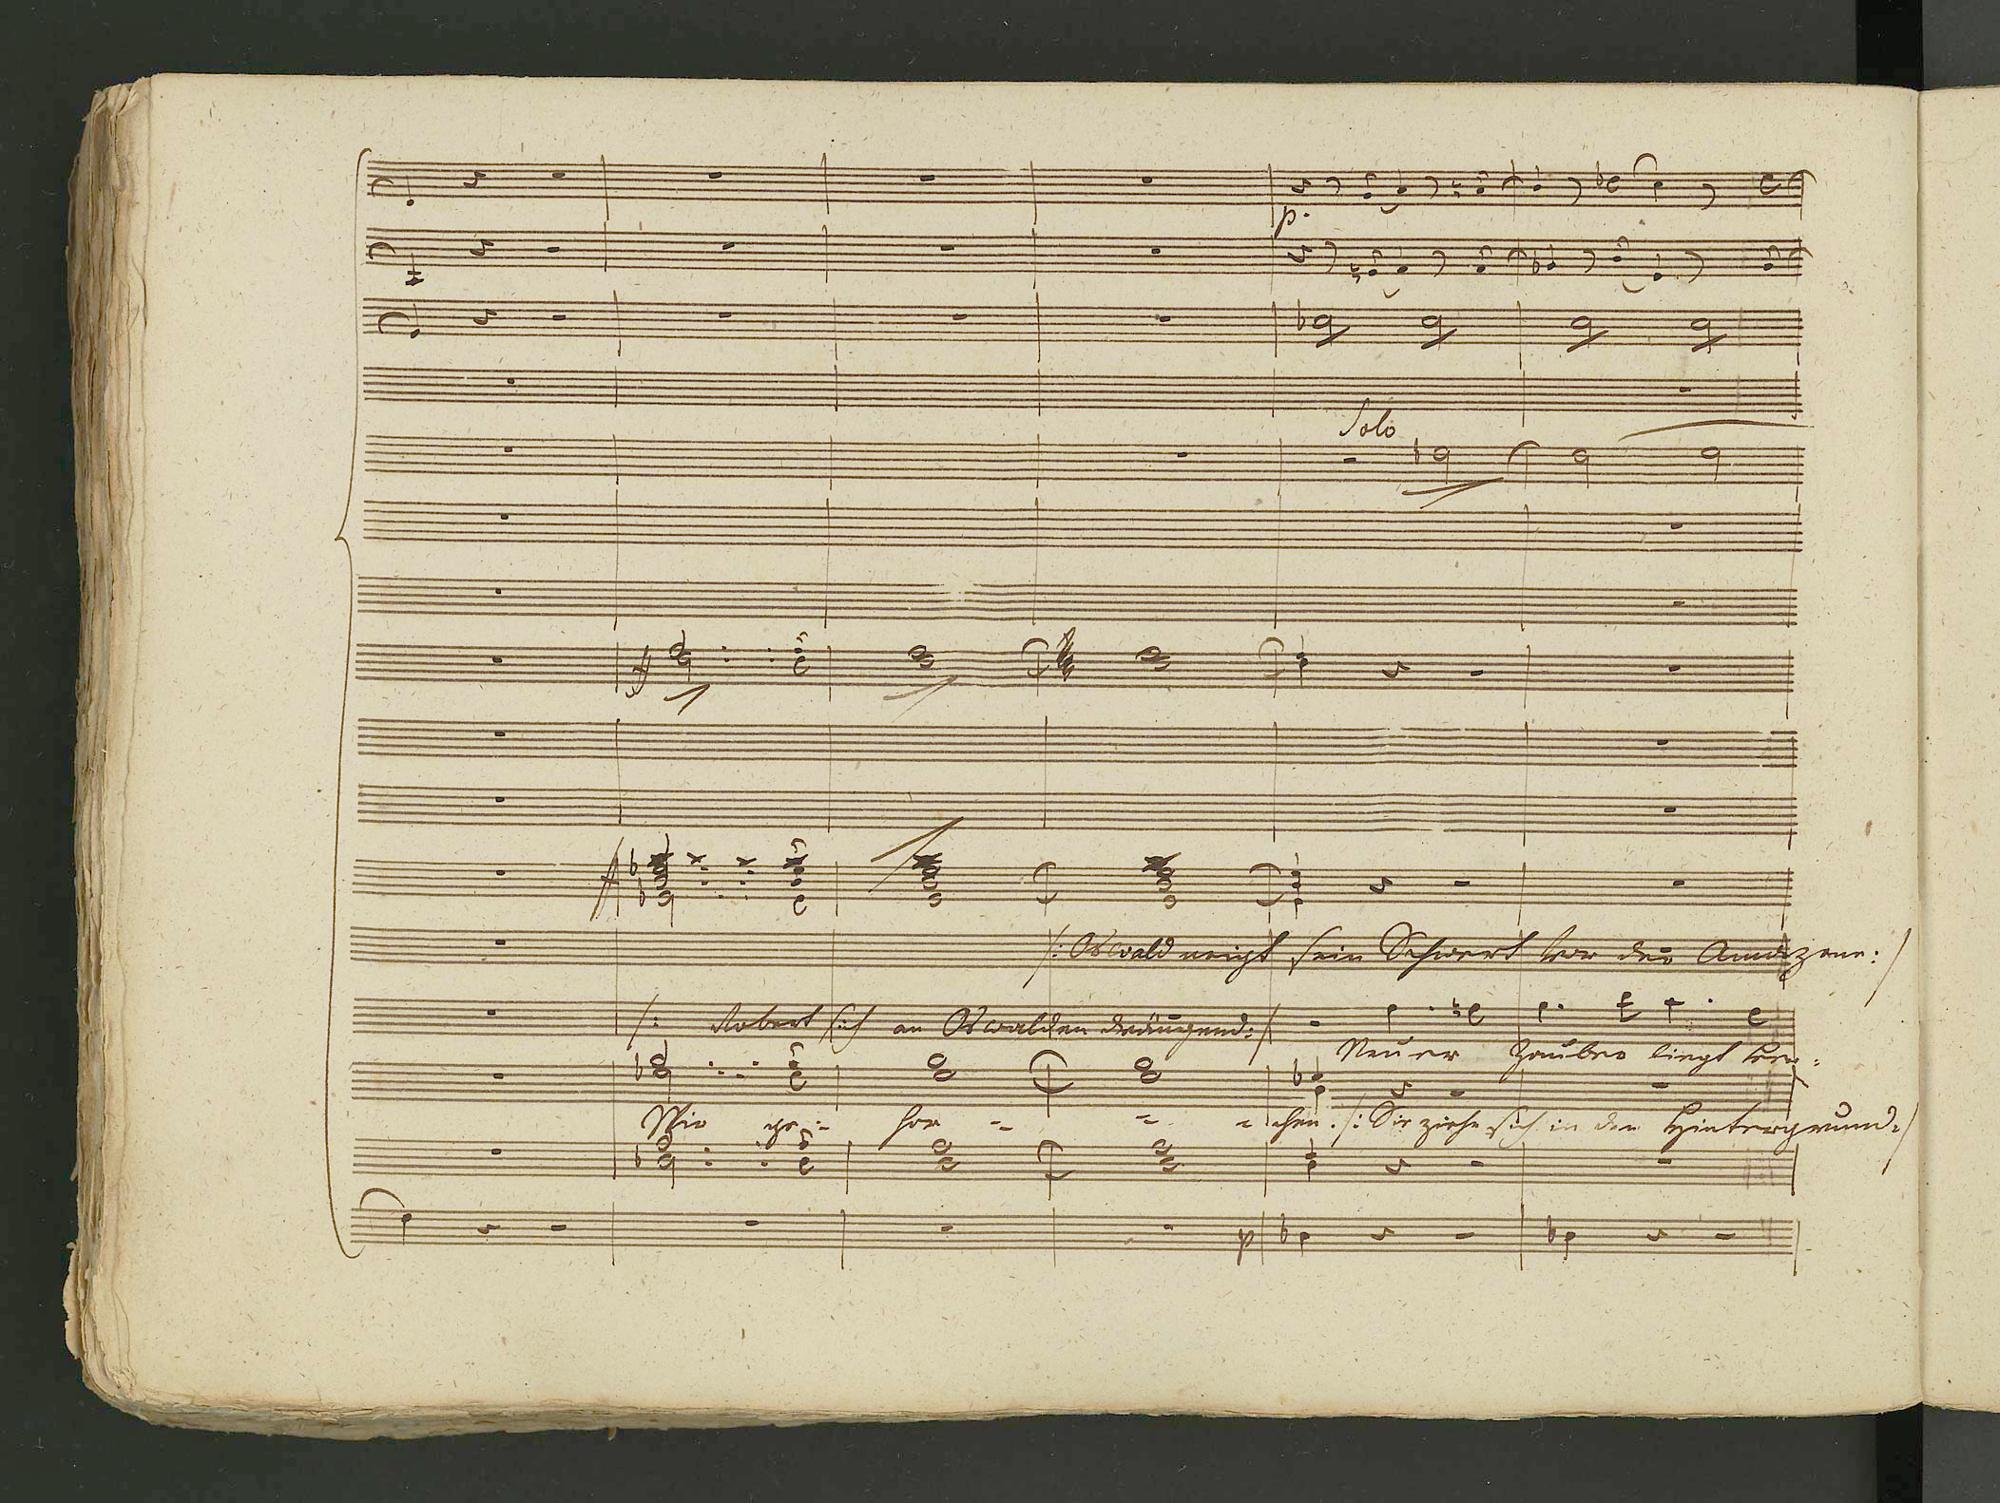 p.
Solo
ff
ff
/: Oswald neigt sein Schwert vor der Amazone :/
/: Robert sich an Oswalden drängend :/
Neuer Zauber liegt ver-
Wir ge- hor - - - chen. /: Sie ziehn sich in den Hintergrund :/
p